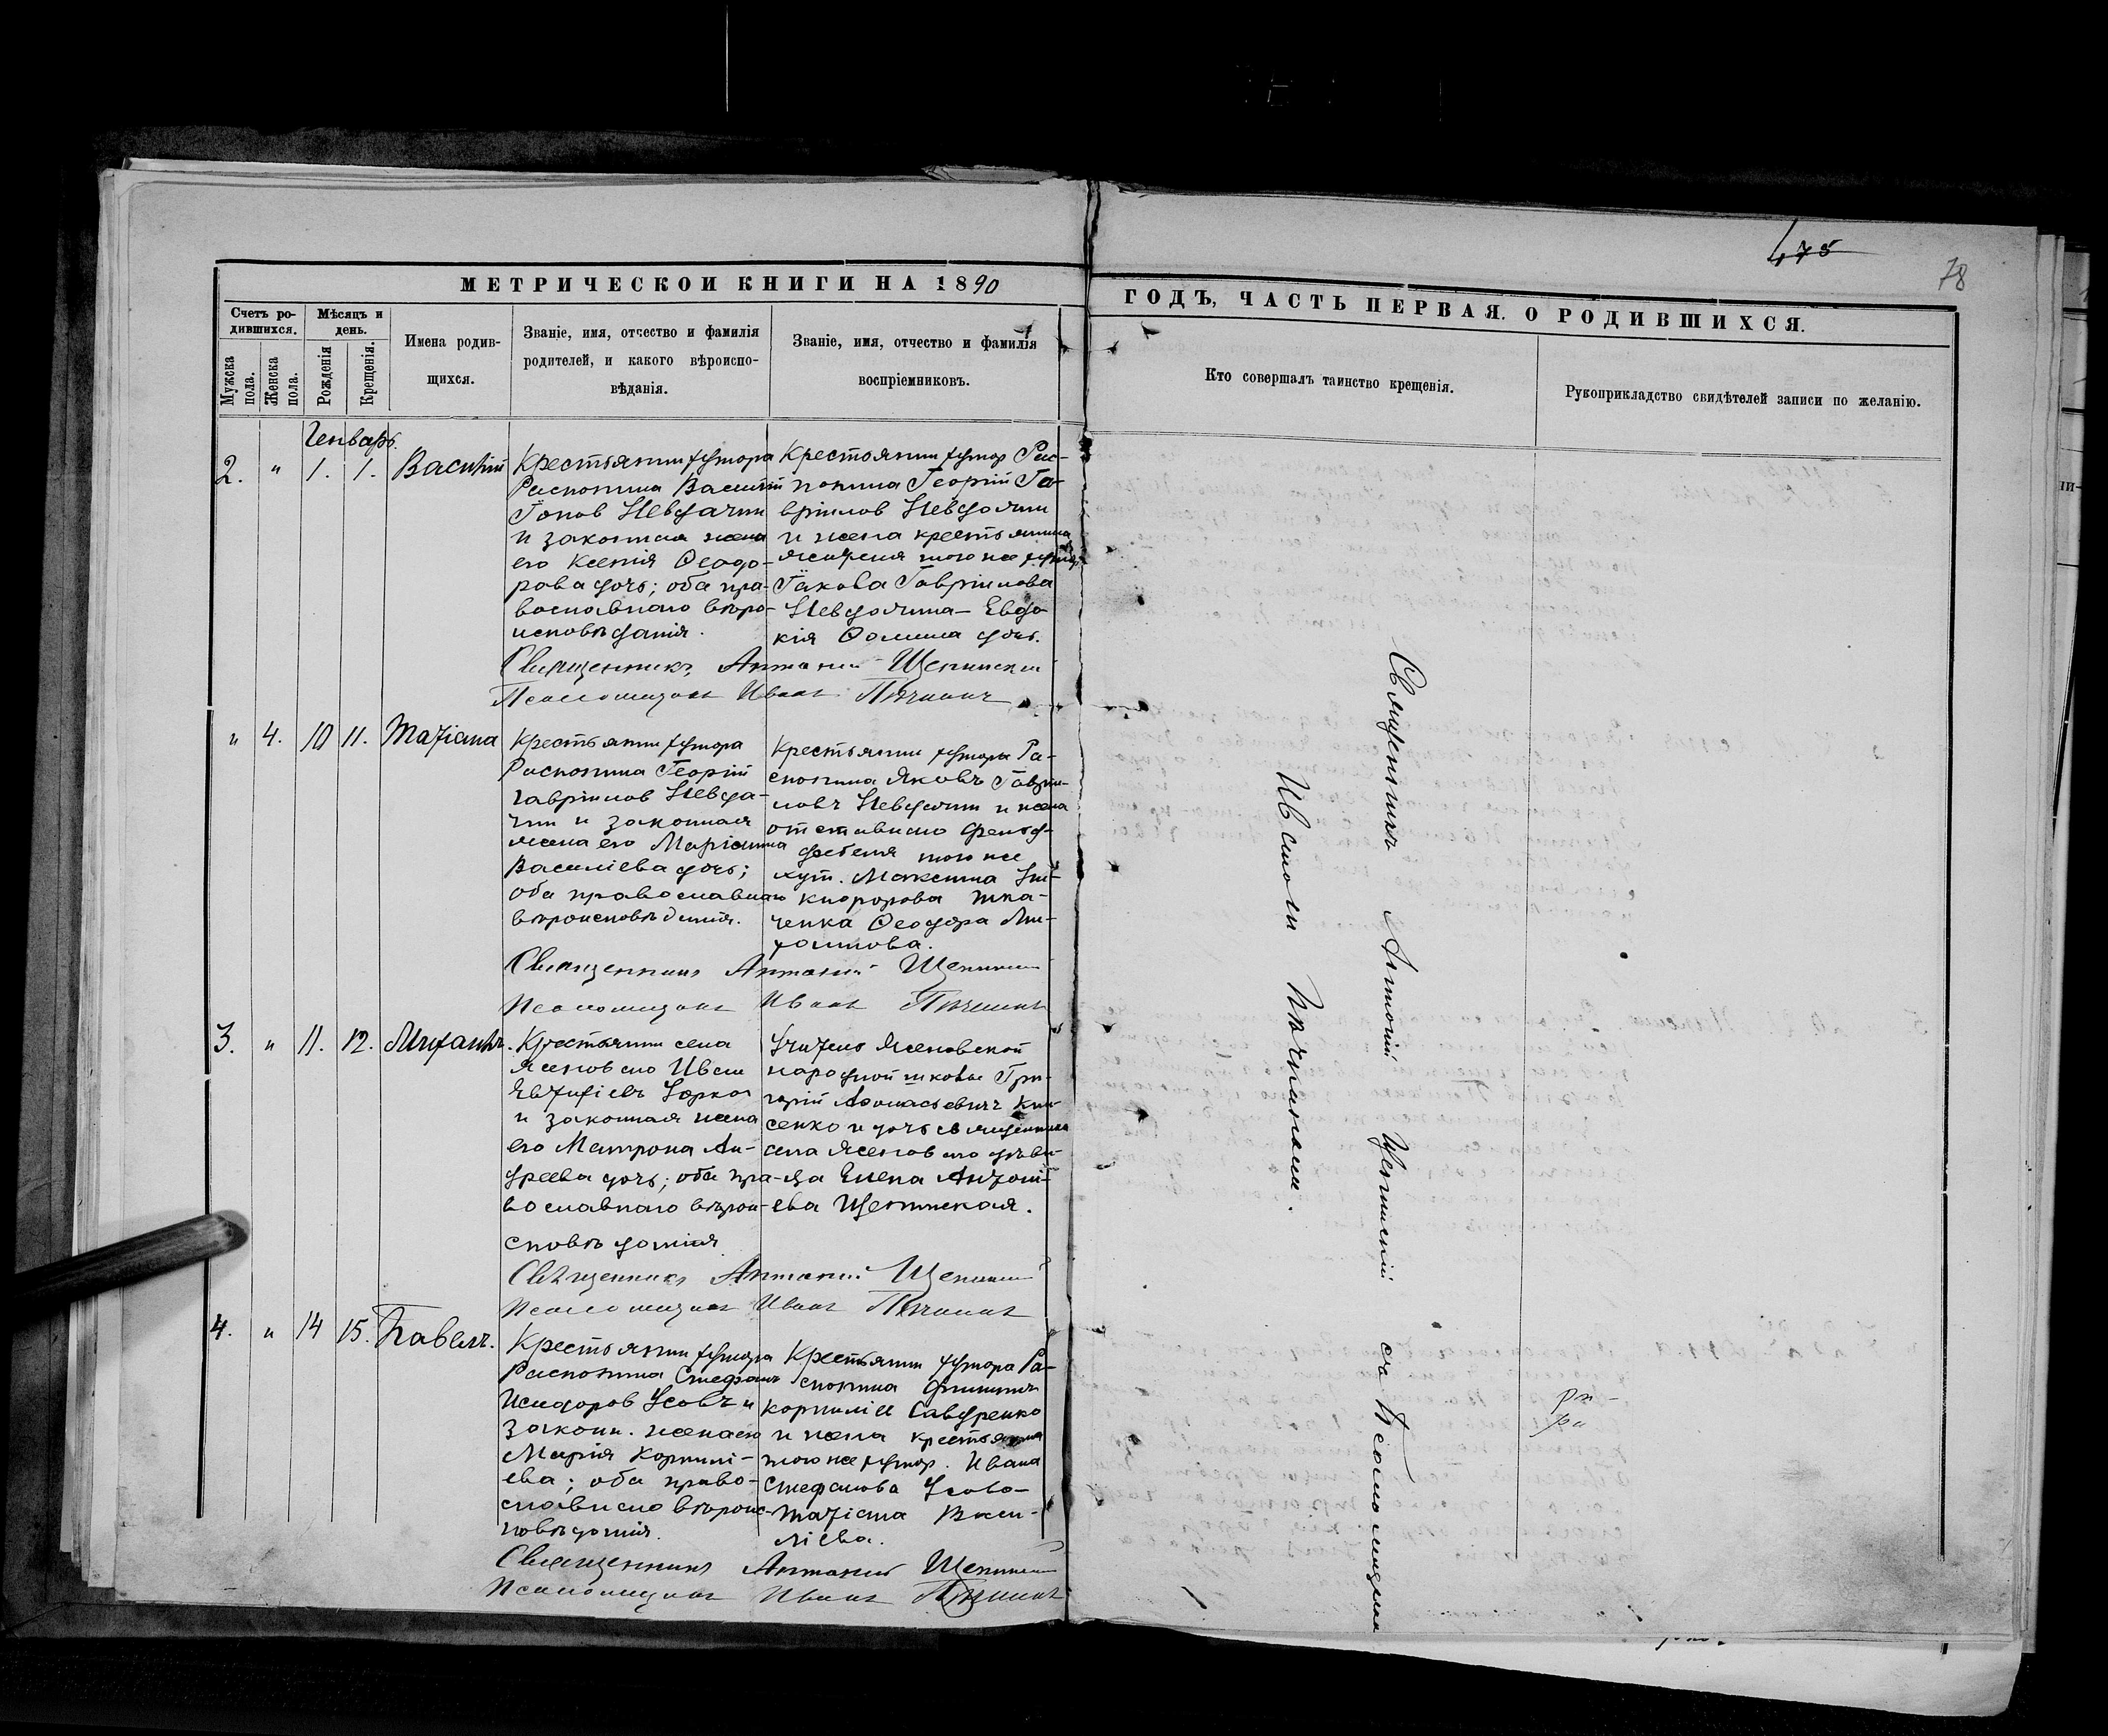 475
78
МЕТРИЧЕСКОЙ КНИГИ НА 1890
ГОДЪ, ЧАСТЬ ПЕРВАЯ. О РОДИВШИХСЯ.
Счетъ ро-
дившихся.
Мужска
пола.
Женска
пола.
Мѣсяцъ и
день.
Рожденія
Крещенія.
Имена родив-
шихся.
Званіе, имя, отчество и фамилія
родителей, и какого вѣроиспо-
вѣданія.
Званіе, имя, отчество и фамилія
воспріемниковъ.
Кто совершалъ таинство крещенія.
Рукоприкладство свидѣтелей записи по желанію.
Генварь.
2. " 1. 1. Василій
Крестьянин хутора
Распопина Василій
Невдачин
и законная жена
его Ксенія Ѳеодо-
рова дочь; оба пра-
вославнаго вѣро-
исповѣданія.
Крестьянин хутор Рас-
попина Георгій Га-
вріилов Невдачин
и жена крестьянина
того же хутор
Іакова Гавріилова
Невдачина - Евдо-
кія Ѳомина дочь.
Священникъ Антоній Щепинскій
Псаломщикъ Иванъ
" 4. 10 11. Татіана
Крестьянин хутора
Распопина Георгій
Гавріилов Невда-
чин и законная
жена его Маріанна
Василіева дочь;
оба православнаго
вѣроисповѣданія.
Крестьянин хутора Ра-
спопина Яковъ Гаврии-
ловъ Невдачин и жена
отставнаго фельд-
фебеля того же
хут. Максима
Тка-
ченка Ѳеодора Ми-
Священникъ Антоній Щепинскій
Псаломщикъ Иванъ
3. " 11. 12. Михаилъ.
Крестьянин села
Ясеновскаго Иван
и законная жена
его Матрона Ан-
дреева дочь; оба пра-
вославнаго вѣрои-
сповѣданія
Учитель Ясеновской
народной школы Гри-
горій Аѳанасьевичъ Кни-
сенко и дочь священника
села Ясеновскаго дѣви-
ца Елена Антоні-
ева Щепинская.
Священникъ Антоній Щепинскій
Псаломщикъ Иванъ
4. " 14 15. Павелъ.
Крестьянин хутора
Распопина Стефанъ
Исидоров Усовъ и
законн. жена его
Марія Корнилі-
ева; оба право-
славнаго вѣроис-
повѣданія.
Крестьянин хутора Ра-
спопина Филиппъ
Корниліев Савдренко
и жена крестьянина
того же хутор. Ивана
Стефанова Усова-
Татіана Васи-
ліева.
Священникъ Антоній Щепинскій
Псаломщикъ Иванъ
Священникъ Антоній Щепинскій съ Псаломщикомъ
Иваномъ